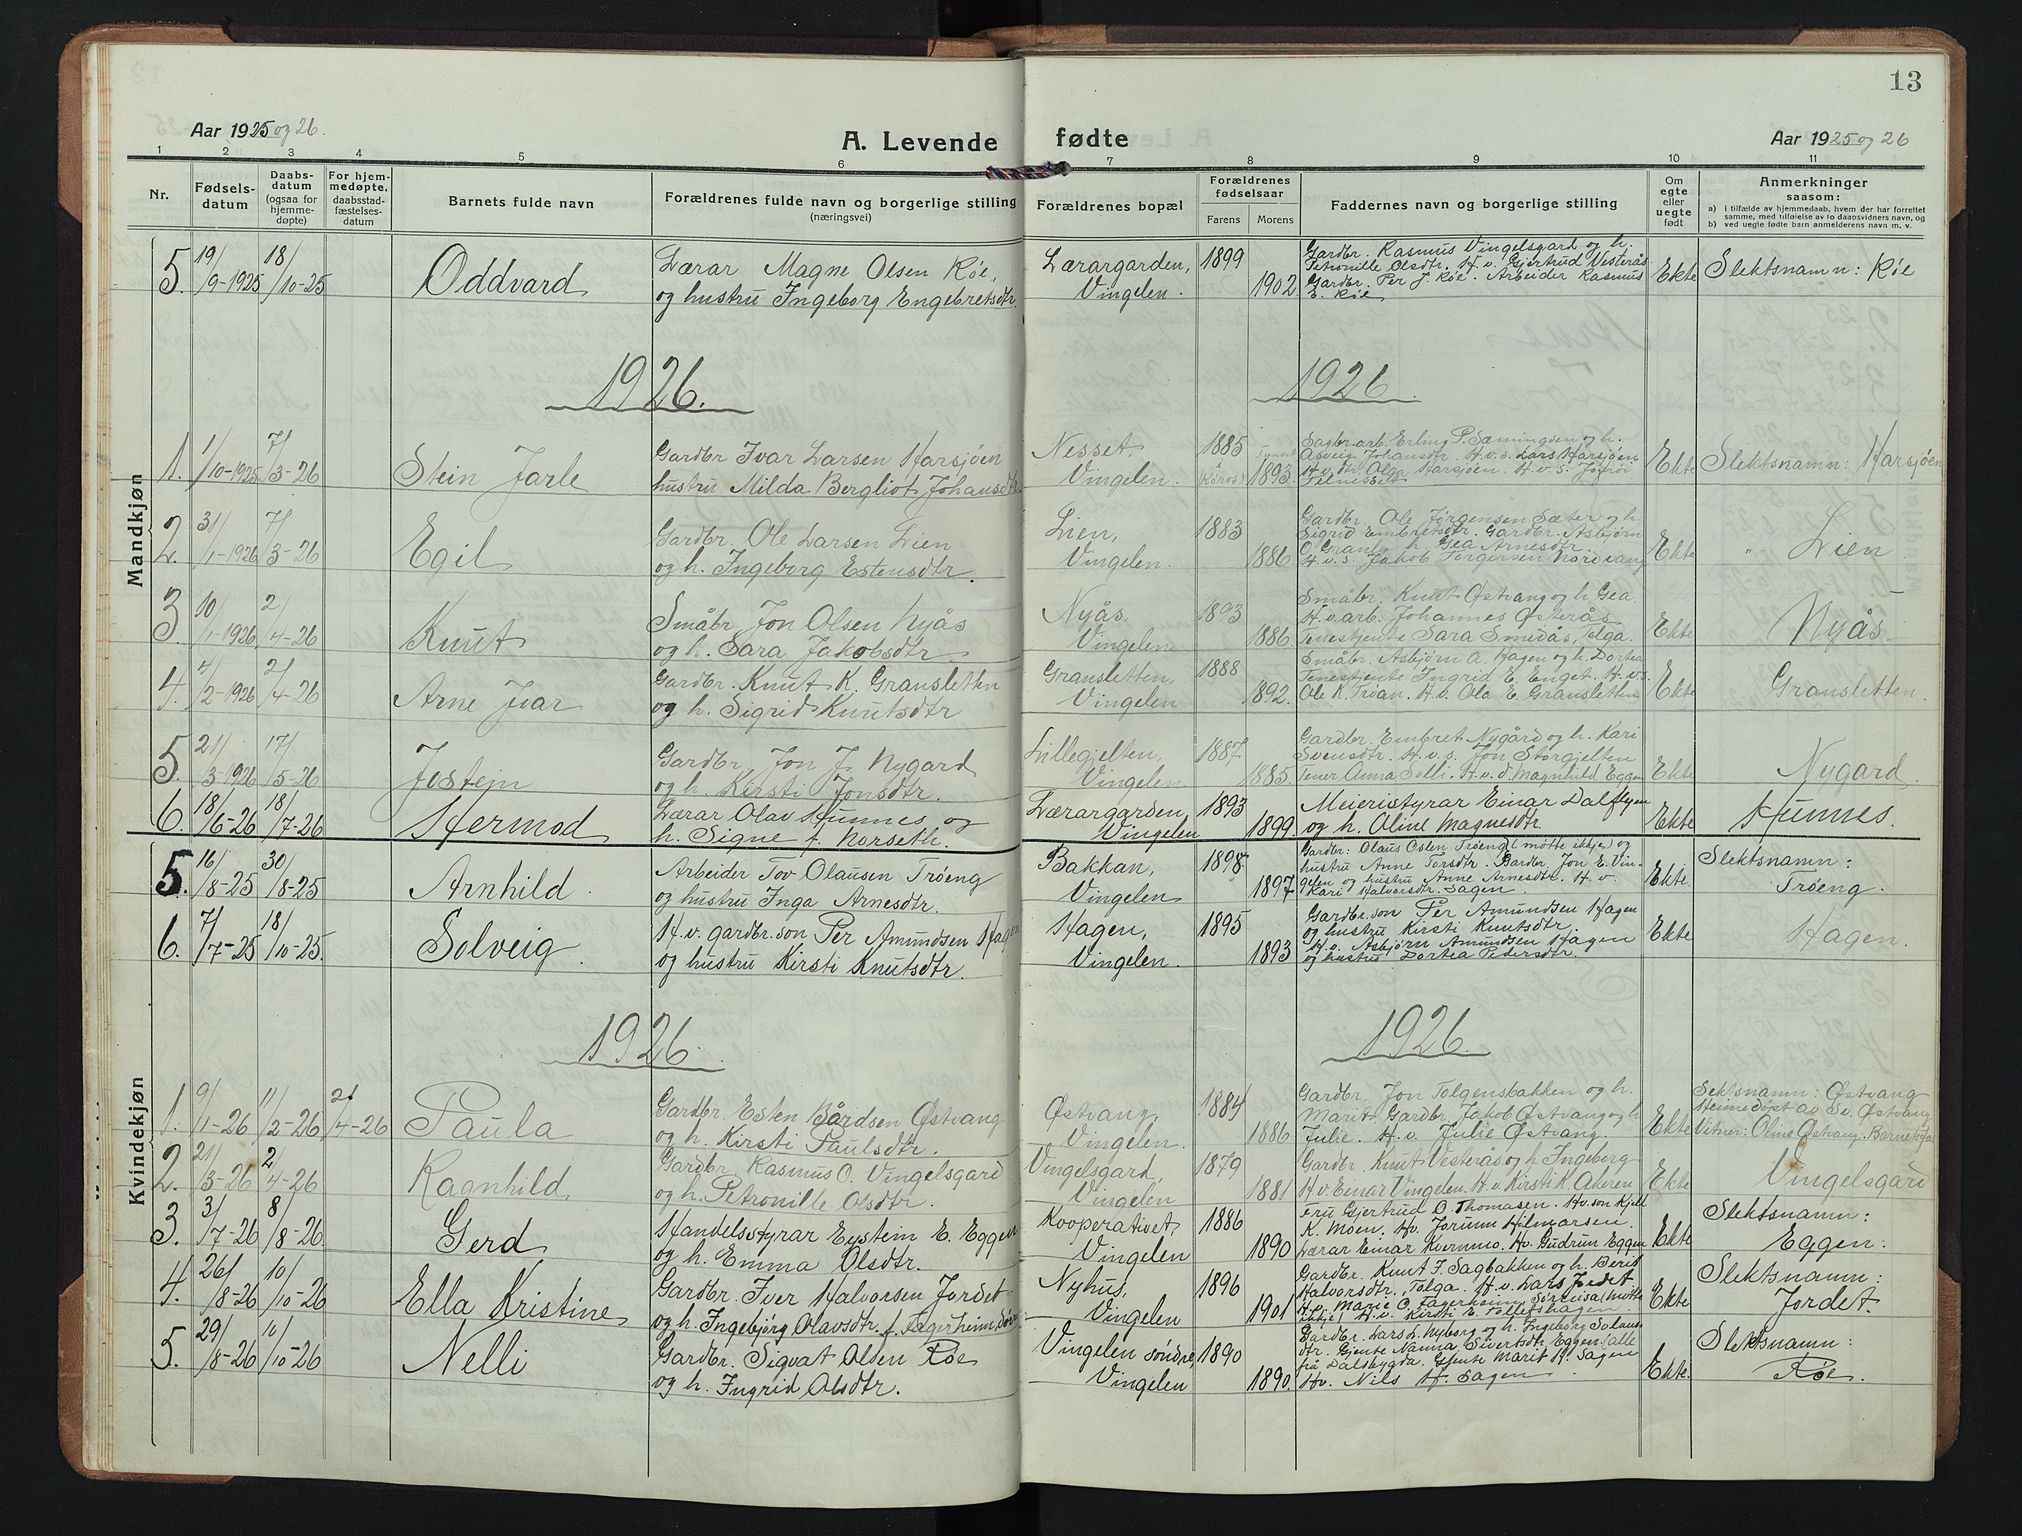 13
Aar 1925 og 26.
A. Levende fødte
Aar 1925 og 26
1 2 3 4 5 6 7 8 9 10 11
Nr.
Fødsels-
datum
Daabs-
datum
(ogsaa for
hjemme-
døpte)
For hjem-
medøpte,
daabsstad-
fæstelses-
datum
Barnets fulde navn
Forældrenes fulde navn og borgerlige stilling
(næringsvei)
Forældrenes bopæl
Forældrenes
fødselsaar
Farens Morens
Faddernes navn og borgerlige stilling
Om
egte
eller
uegte
født
Anmerkninger
saasom:
a) i tilfælde av hjemmedaab, hvem der har forrettet
samme, med tilføielse av to daabsvidners navn, og
b) ved uegte fødte barn anmelderens navn m. v.
Mandkjøn
5. 19/9-1925 18/10-25 Oddvard
Lærar Magne Olsen Røe,
og hustru Ingeborg Engebretsdtr.
Lærargarden,
Vingelen.
1899
1902
Gardbr. Rasmus Vingelsgard og h.
Petronille Olsdtr. H.v. Gjertrud Vesterås
Gardbr. Per J. Røe. Arbeider Rasmus
E. Røe
Ekte
Slektsnamn: Røe
1926.
1926
1. 1/10-1925 7/3-26 Stein Jarle
Gardbr Ivar Larsen Harsjøen
hustru Milda Bergliot Johansdtr
Nesset
Vingelen.
1885
(Røros)
1893
Sagbr.arb. Erling P. Sæmingsen og h.
Asveig Johansdtr. H.v.s. Lars Harsjøen
H.v. dtr. Olga Harsjøen. H.v.s.
Telnesset
Ekte
Slektsnamn: Harsjøen
2. 31/1-1926 7/3-26 Egil
Gardbr. Ole Larsen Lien
og h. Ingeborg Estensdtr.
Lien,
Vingelen.
1883
1886
Gardbr. Ole Jørgensen Sæter og h.
Sigrid Embretsdtr. Gardbr. Asbjørn
O. Grané h. Gea Arnesdtr.
H.v.s. Jakob Torgersen Nordvang
Ekte
" Lien
3. 10/1-1926 2/4-26 Knut
Småbr Jon Olsen Nyås
og h. Sara Jakobsdtr.
Nyås
Vingelen
1893
1886
Småbr. Knut Østvang og h Gea.
H.v. arb. Johannes Østerås
Tenestjente Sara Smedås, Tolga.
Ekte
Nyås.
4. 4/2-1926 2/4-26 Arne Ivar
Gardbr. Knut K. Gransletten
og h. Sigrid Knutsdtr
Gransletten,
Vingelen
1888
1892.
Småbr. Asbjørn A. Hagen og h. Dortea
Tenestjente Ingrid E. Enget. H.v.s.
Ole K. Trøan. H.v. Ola E. Gransletten
Ekte
Gransletten.
5. 21/3-1926 17/5-26 Jostein
Gardbr. Jon J. Nygard
og h. Kirsti Jonsdtr.
Lillegjelten,
Vingelen
1887
1885.
Gardbr. Embret Nygård og h. Kari
Svensdtr. H.v.s. Jon Storgjelten
Tener Anna Selli. H.v.d. Magnhild Eggen
Ekte
Nygard.
6. 18/6-26 18/7-26 Hermod
Lærar Olav Hunnes og
h. Signe f. Norseth.
Lærargarden,
Vingelen
1893
1899.
Meieristyrar Einar Dalflyen
og h. Oline Magnesdtr.
Ekte
Hunnes.
Kvindekjøn
5. 16/8-25 30/8-25 Arnhild.
Arbeider Tov Olausen Trøeng
og hustru Inga Arnesdtr.
Bakkan,
Vingelen
1898
1897
Gardbr: Olaus Oslen Trøeng (møtte ikkje) og
hustru Anne Torsdtr. Gardbr. Jon E. Vin-
gelen og hustru Anne Arnesdtr. H.v.
Kari Halvorsdtr. Sagen.
Ekte.
Slektsnamn:
Trøeng.
6. 7/7-25 18/10-25. Solveig.
H.v. gardbr.son Per Amundsen Hagen
og hustru Kirsti Knutsdtr.
Hagen,
Vingelen.
1895
1893
Gardbr.son Per Amundsen Hagen
og hustru Kirsti Knutsdtr.
H.v. Asbjørn Amundsen Hagen
og hustru Dortea Pedersdtr.
Ekte
Hagen.
1926.
1926.
1. 9/1-26 11/2-26 2/4-26 Paula
Gardbr. Esten Bårdsen Østvang
og h. Kirsti Paulsdtr.
Østvang
Vingelen.
1884
1886
Gardbr. Jon Tolgensbakken og h.
Marit. Gardbr. Jakob Østvang og h
Julie. H.v. Julie Østvang.
Ekte
Sektsnamn: Østvang
Heimedøpt av Sv. Østvang
Vitner: Oline Østvang. Barnets far
2. 21/3-26 2/4-26 Ragnhild
Gardbr. Rasmus O. Vingelsgard
og h. Petronille Olsdtr.
Vingelsgard,
Vingelen
1879
1881
Gardbr. Knut Vesterås og h. Ingeberg
H.v. Einar Vingelen. H.v. Kirsti K. Akeren
Ekte
Vingelsgard
3. 3/7-26 8/8-26 Gerd
Handelsstyrar Eystein E. Eggen
og h. Emma Olsdtr.
Kooperativet,
Vingelen
1886
1890
Fru Gjertrud O. Thomasen. Hv. son Kjell
K. Moen. Hv. Jorunn Hilmarsen.
Lærar Einar Kvernmo. Hv. Gudrun Eggen
Ekte
Slektsnamn:
Eggen.
4. 26/8-26 10/10-26 Ella Kristine
Gardbr. Iver Halvorsen Jordet
og h. Ingebjørg Olavsdtr. f. Fagerheim,
Nyhus,
Vingelen
1896
1901
Gardbr. Knut F. Sagbakken og h. Berit
Halvorsdtr, Tolga. H.v. Lars Jordet,
H.v. Marie O. Fagerheim, Sørreisa (møtte
ikkje) H.v. Kirsti E. Tollefshagen.
Ekte
Slektsnamn:
Jordet.
5. 29/8-26 10/10-26 Nelli
Gardbr. Sigvat Olsen Røe
og h. Ingrid Olsdtr.
Vingelen søndre,
Vingelen
1890
1890.
Gardbr. Lars L. Nyborg og h. Ingeborg Solaus-
dtr. Gjente Nanna Sivertsdtr. Eggen (alle
frå Dalsbygda. Gjente Marit H. Sagen
Hv. Nils H. Sagen.
Ekte.
Slektsnamn:
Røe.